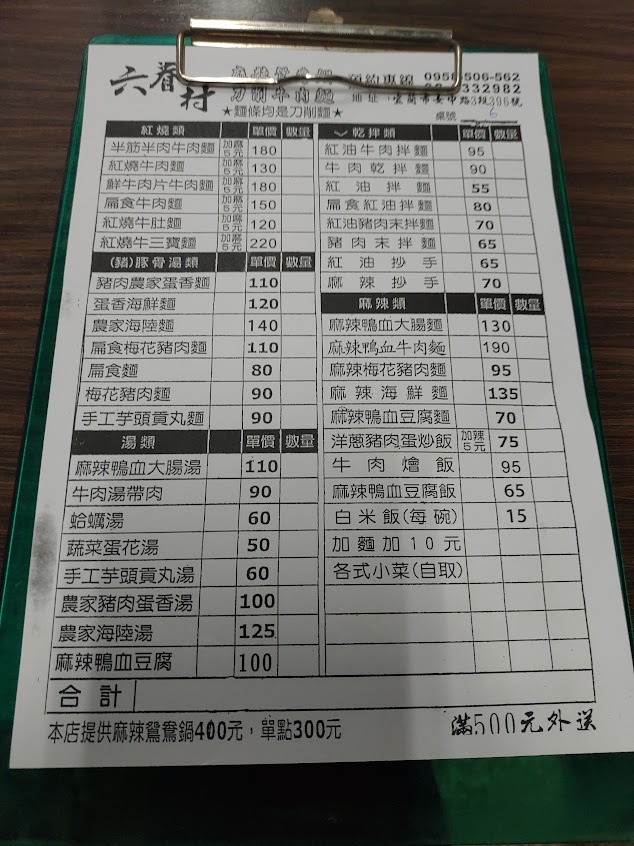 六眷村
刀削牛肉麵
預約專線 0958-506-562
332982
地址:宜蘭市
3段396號
★麵條均是刀削麵★
桌號 6
紅燒類 單價 數量
半筋半肉牛肉麵 加麻5元 180
紅燒牛肉麵 加麻5元 130
鮮牛肉片牛肉麵 加麻5元 180
扁食牛肉麵 加麻5元 150
紅燒牛肚麵 加麻5元 120
紅燒牛三寶麵 加麻5元 220
(豬)豚骨湯類 單價 數量
豬肉農家蛋香麵 110
蛋香海鮮麵 120
農家海陸麵 140
扁食梅花豬肉麵 110
扁食麵 80
梅花豬肉麵 90
手工芋頭貢丸麵 90
湯類 單價 數量
麻辣鴨血大腸湯 110
牛肉湯帶肉 90
蛤蠣湯 60
蔬菜蛋花湯 50
手工芋頭貢丸湯 60
農家豬肉蛋香湯 100
農家海陸湯 125
麻辣鴨血豆腐 100
乾拌類 單價 數量
紅油牛肉拌麵 95
牛肉乾拌麵 90
紅油拌麵 55
扁食紅油拌麵 80
紅油豬肉末拌麵 70
豬肉末拌麵 65
紅油抄手 65
麻辣抄手 70
麻辣類 單價 數量
麻辣鴨血大腸麵 130
麻辣鴨血牛肉麵 190
麻辣梅花豬肉麵 95
麻辣海鮮麵 135
麻辣鴨血豆腐麵 70
洋蔥豬肉蛋炒飯 加辣5元 75
牛肉燴飯 95
麻辣鴨血豆腐飯 65
白米飯(每碗) 15
加麵加10元
各式小菜(自取)
合計
本店提供麻辣鴛鴦鍋400元,單點300元
滿500元外送